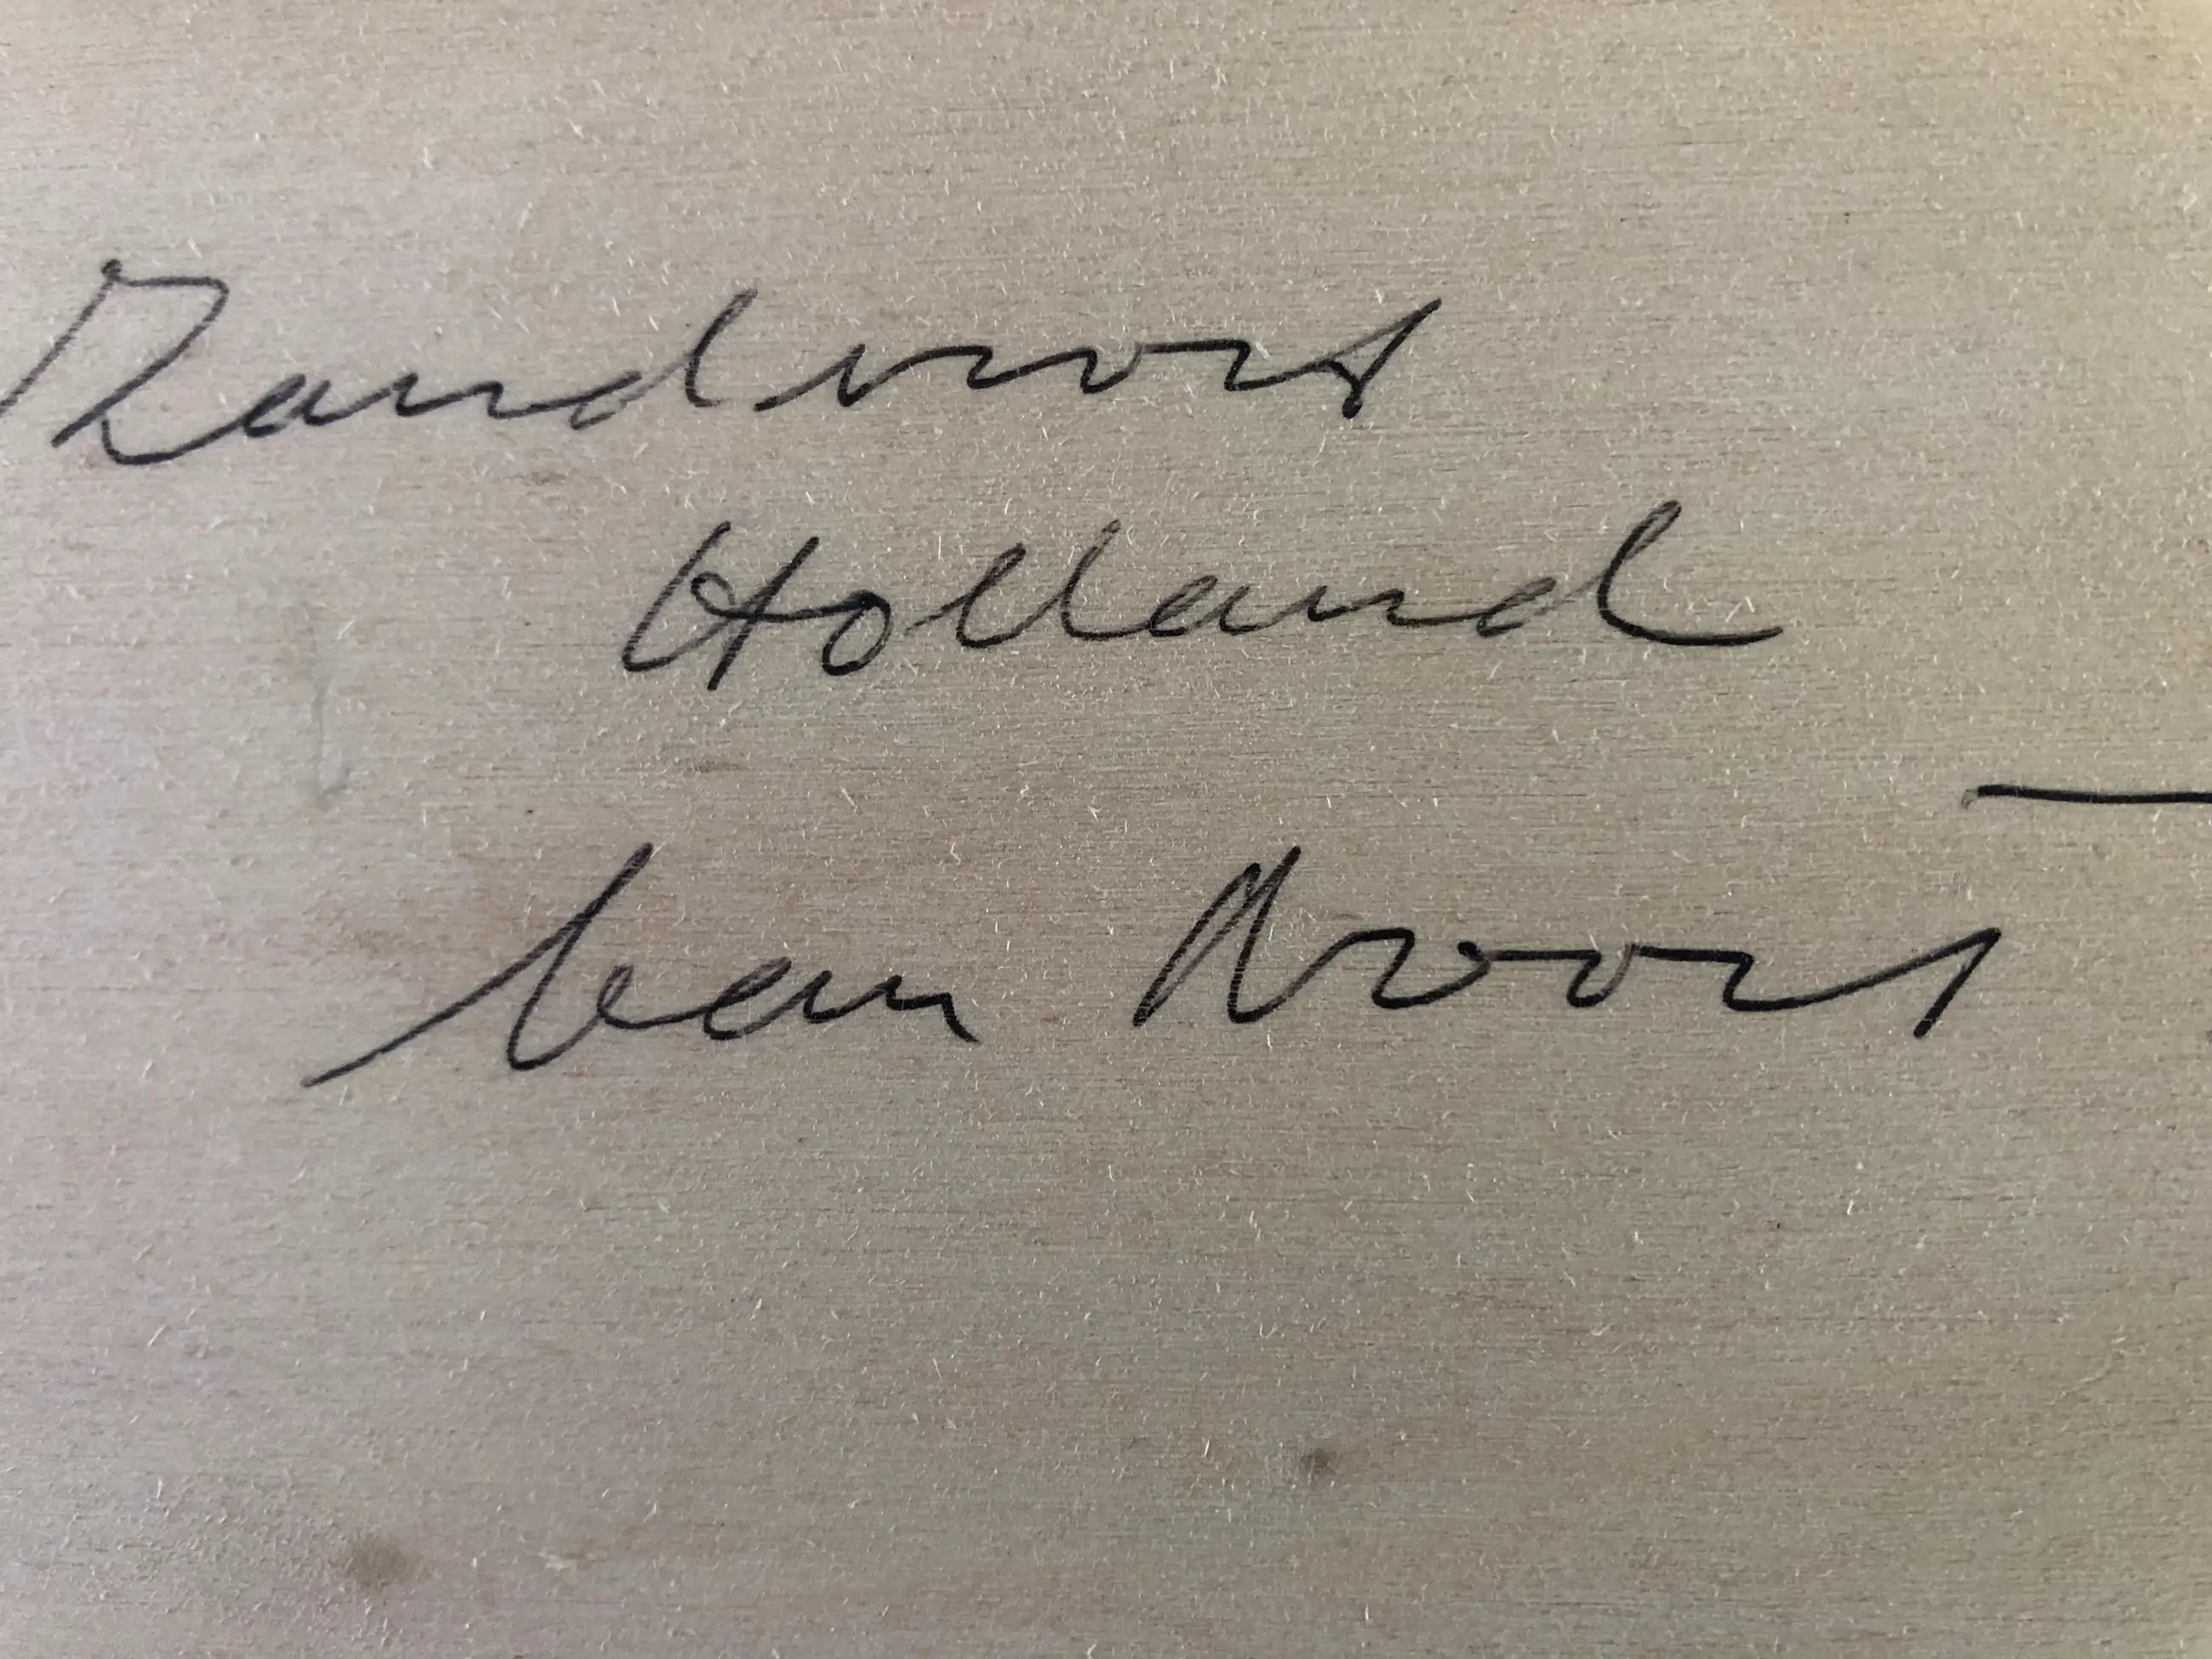 Zandvoort
Holland
van Noort